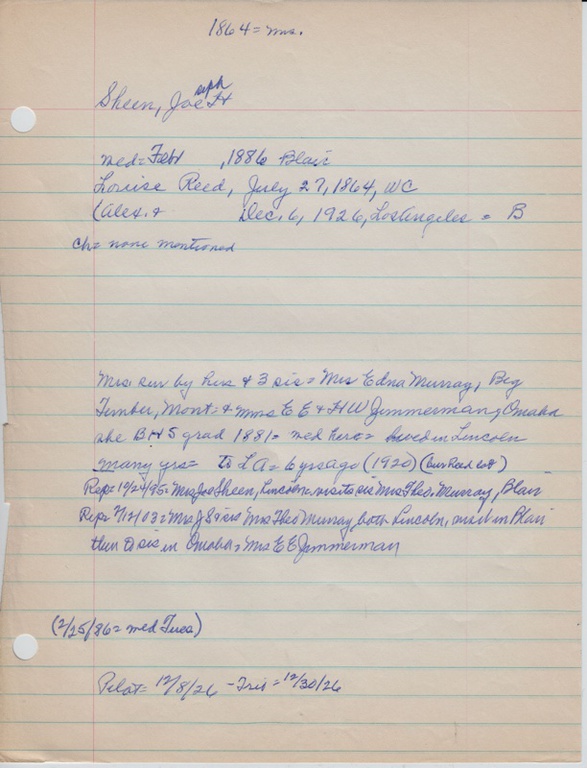 1864 = Mrs.
Sheen, Joseph H
med = Febr , 1886 Blair
Louise Reed, July 27, 1864, WC
(Alex. & Dec. 6, 1926, Los Angeles = B
ch = none mentioned
Mrs. sur by hus & 3 sis = Mrs Edna Murray, Big
Timber, Mont. & Mmes E E & H W Zimmerman, Omaha
she BHS grad 1881 = med here = lived in Lincoln
many yrs = to LA = 6 yrs ago (1920)
Rep = 10/24/95 = Mrs Joe Sheen, Lincoln, visits sis Mrs Theo. Murray, Blair
Rep = 7/12/03 = Mrs J S & sis Mrs Theo Murray, both Lincoln, visit in Blair
then to sis in Omaha = Mrs E E Zimmerman
(2/25/86 = med Tues)
Pilot = 12/8/26 - Trib = 12/30/26